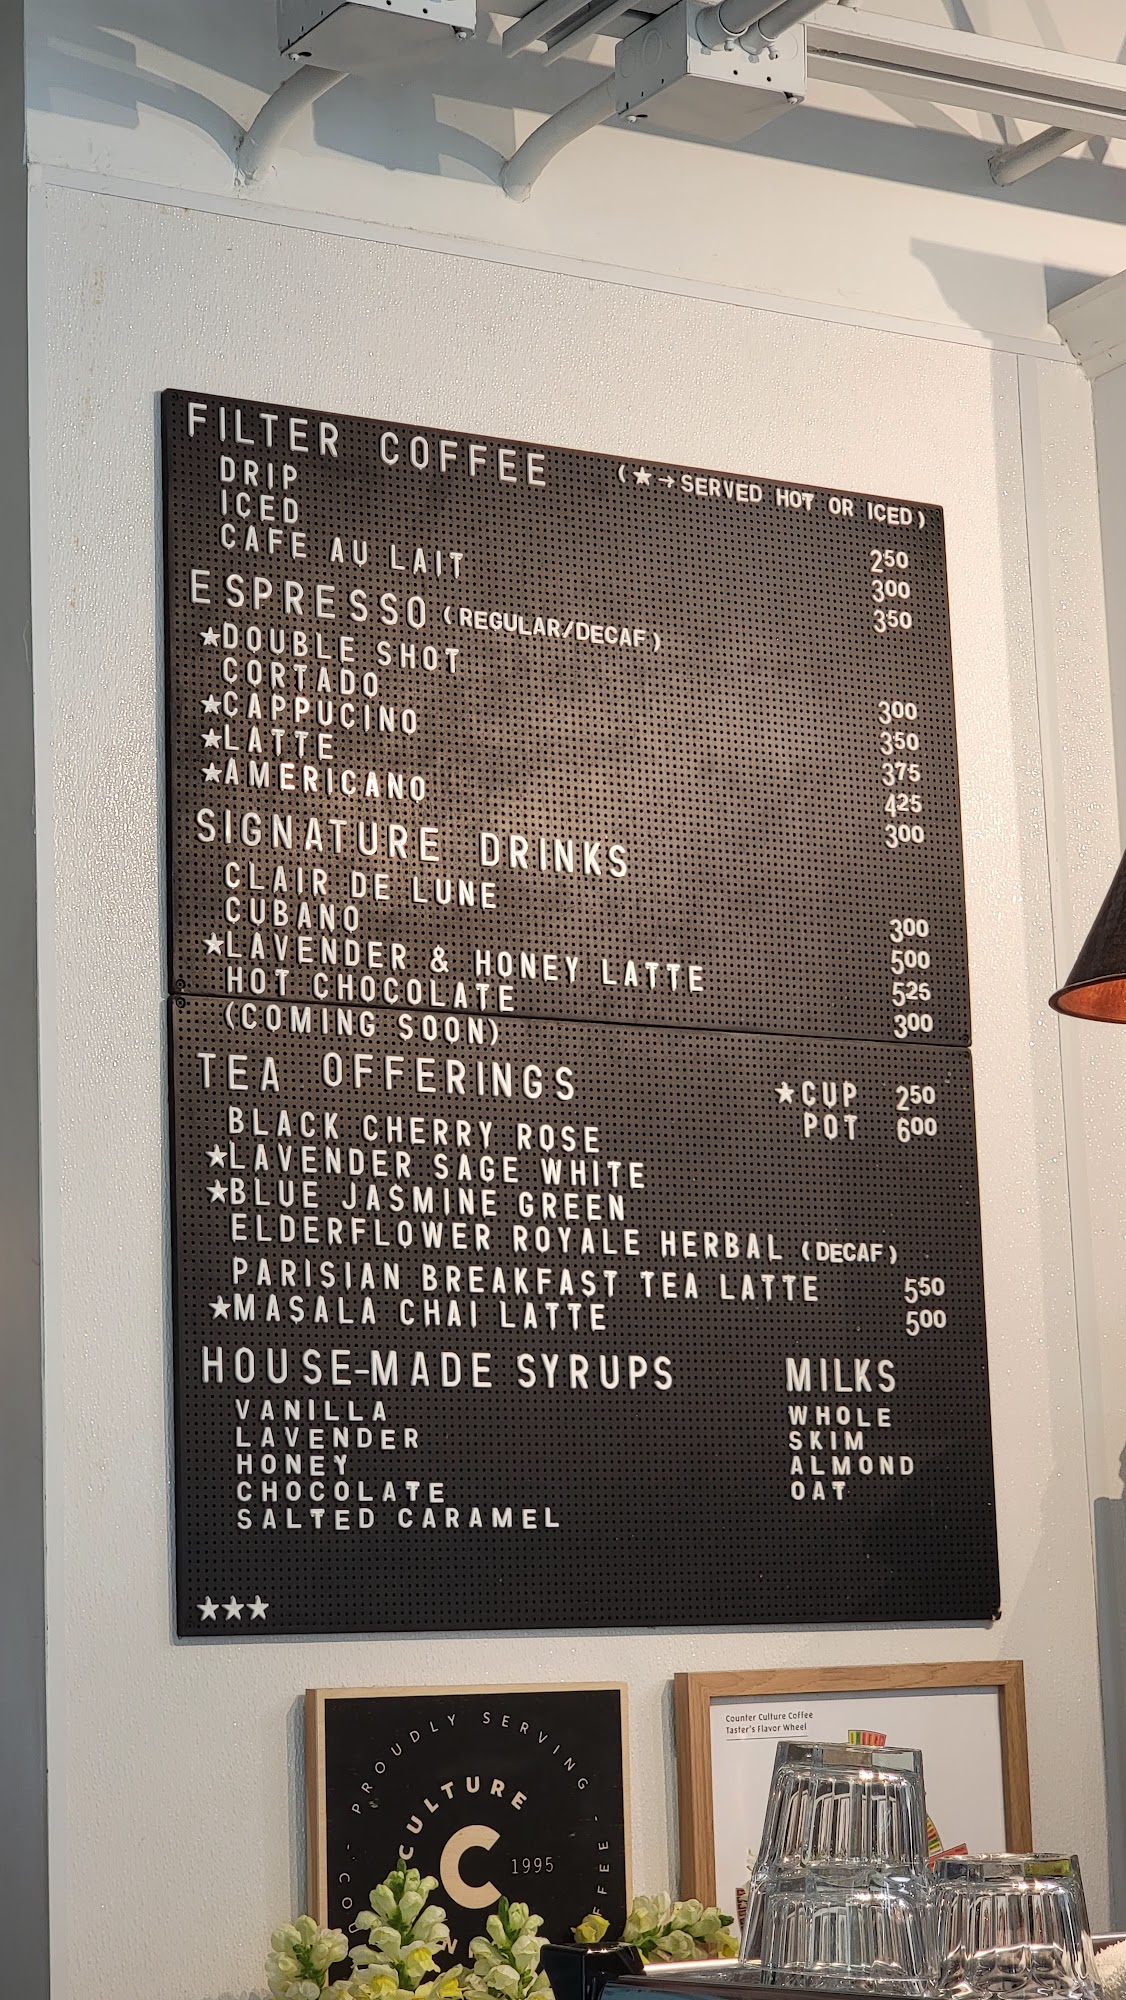 FILTER COFFEE (★→SERVED HOT OR ICED)
DRIP 250
ICED 300
CAFE AU LAIT 350
ESPRESSO (REGULAR/DECAF)
★DOUBLE SHOT 300
CORTADO 350
★CAPPUCINO 375
★LATTE 425
★AMERICANO 300
SIGNATURE DRINKS
CLAIR DE LUNE 300
CUBANO 500
★LAVENDER & HONEY LATTE 525
HOT CHOCOLATE 300
(COMING SOON)
TEA OFFERINGS ★CUP 250
POT 600
BLACK CHERRY ROSE
★LAVENDER SAGE WHITE
★BLUE JASMINE GREEN
ELDERFLOWER ROYALE HERBAL (DECAF)
PARISIAN BREAKFAST TEA LATTE 550
★MASALA CHAI LATTE 500
HOUSE-MADE SYRUPS
VANILLA
LAVENDER
HONEY
CHOCOLATE
SALTED CARAMEL
MILKS
WHOLE
SKIM
ALMOND
OAT
★★★
PROUDLY SERVING
CULTURE
C
1995
Counter Culture Coffee
Taster's Flavor Wheel